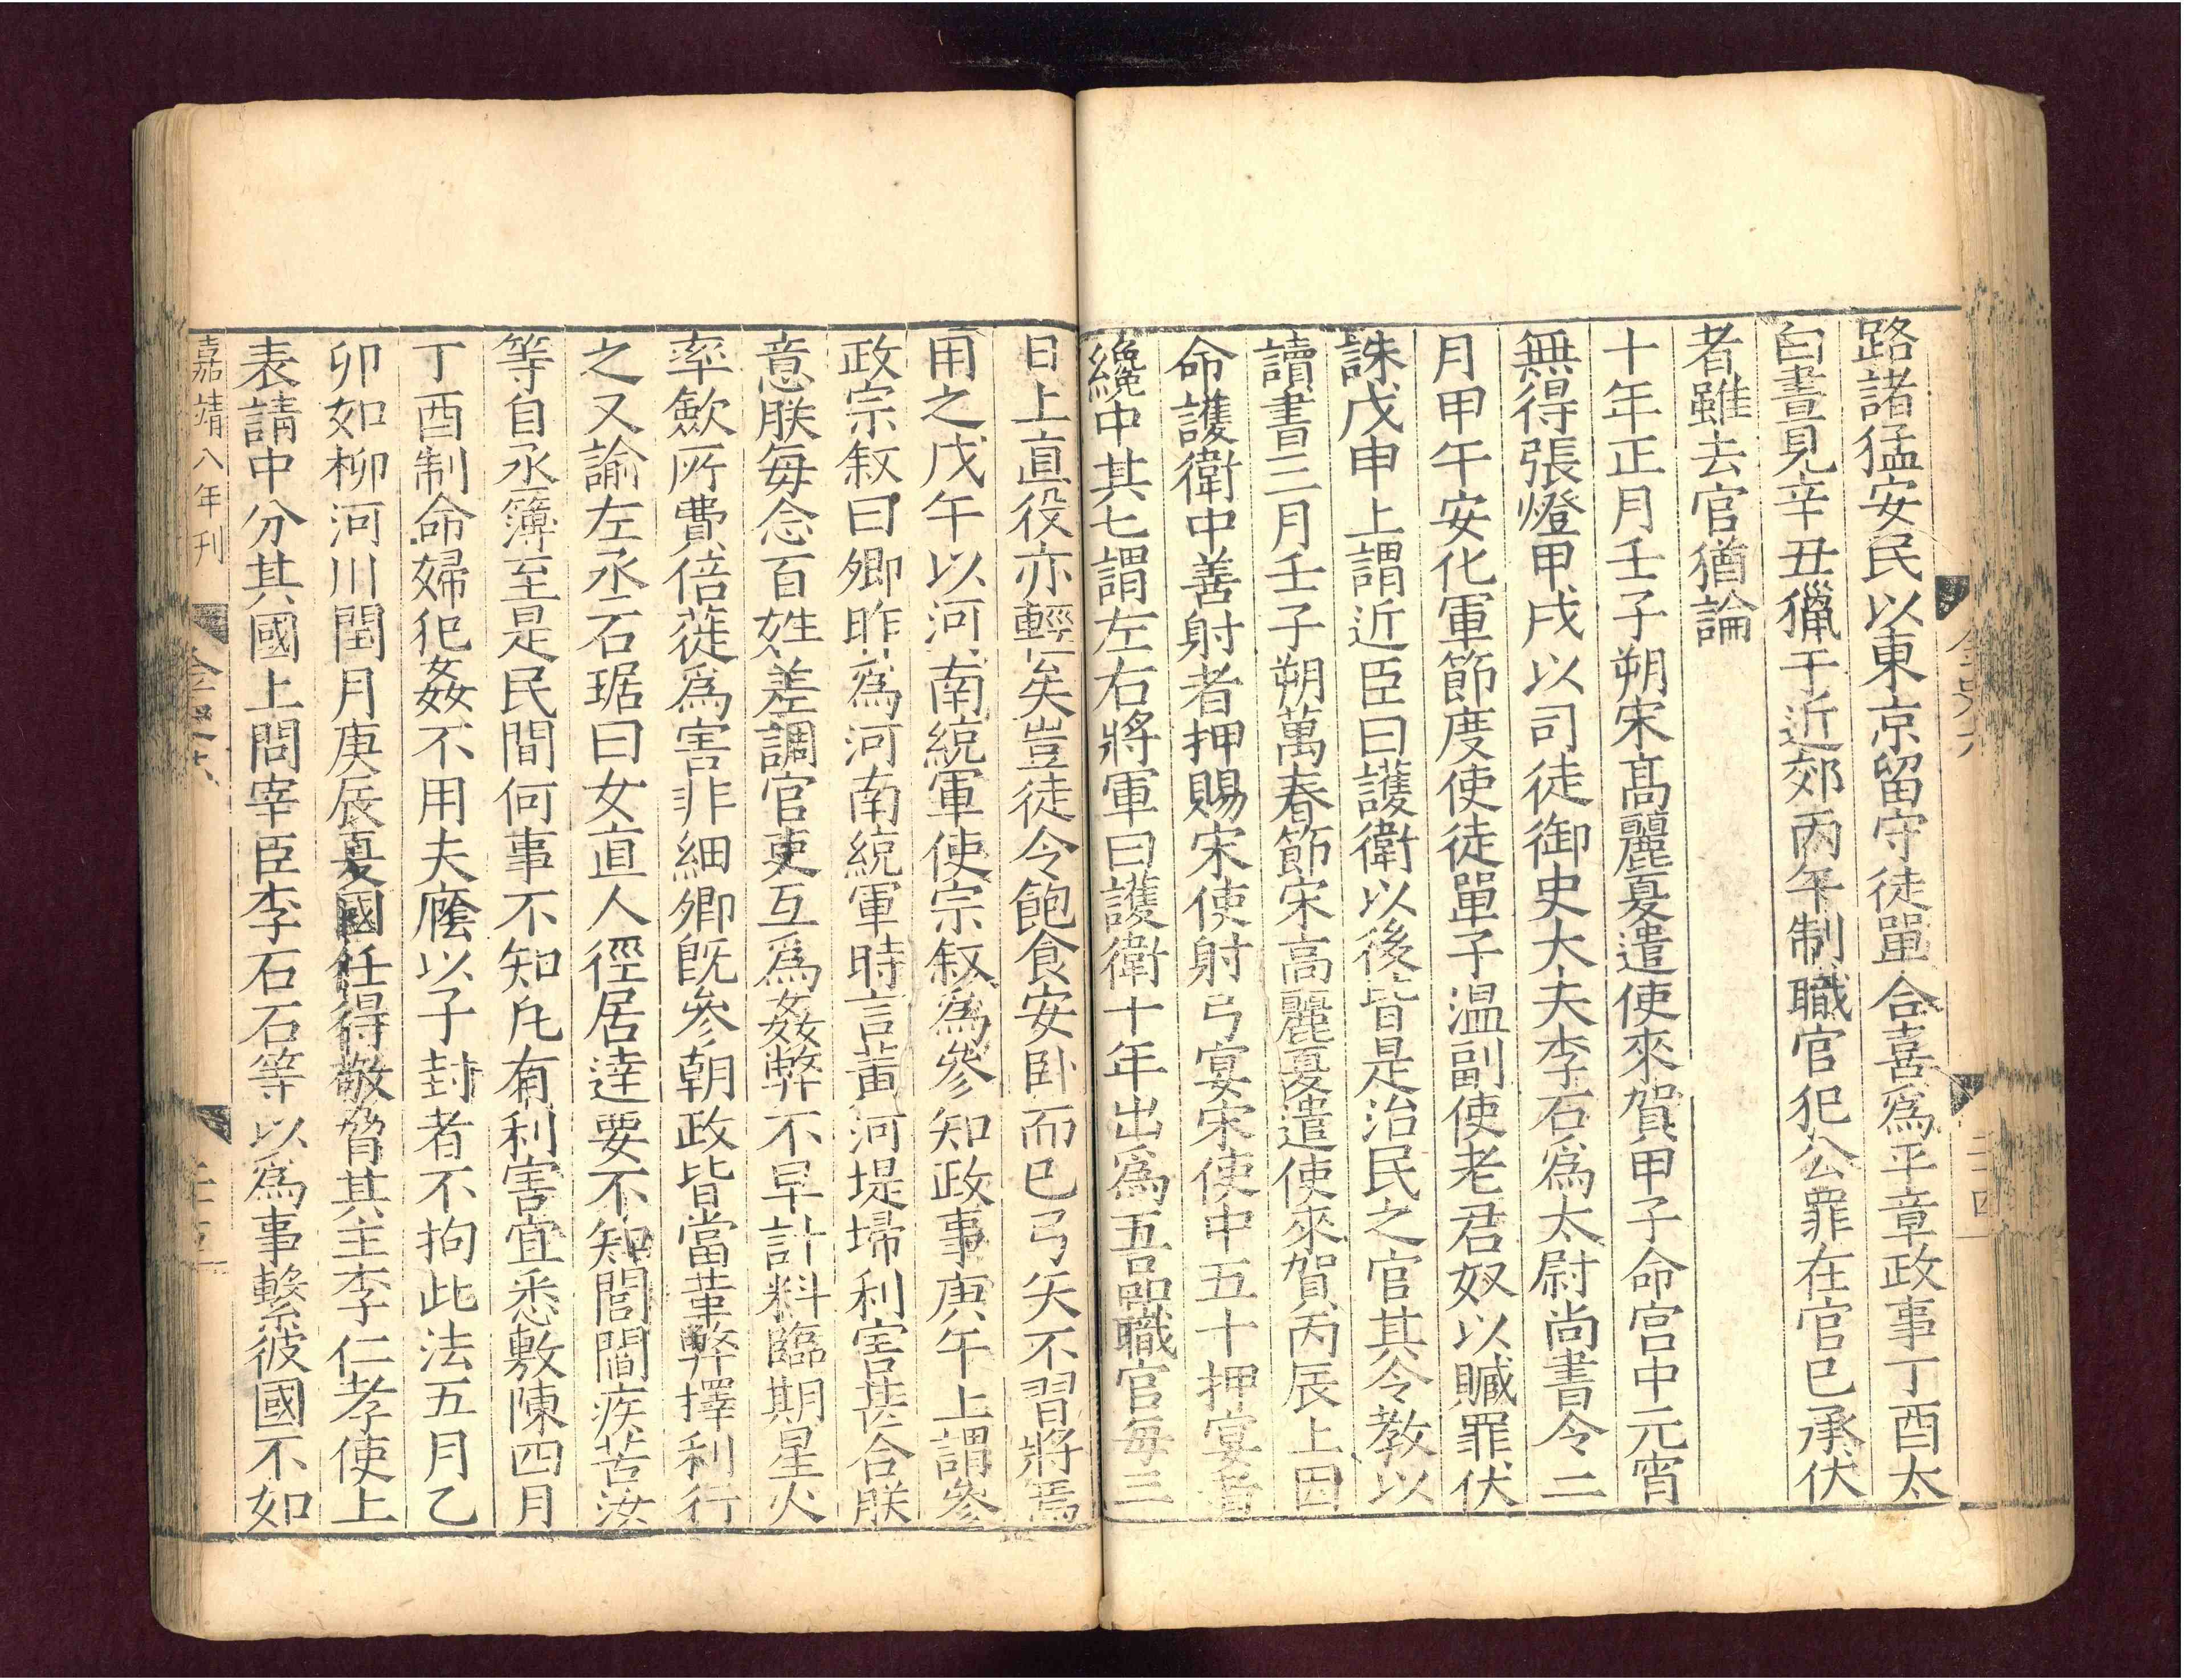 路諸猛安民以東京留守徒單合喜爲平章政事丁酉太
白晝見辛丑獵于近郊丙午制職官犯公罪在官已承伏
者雖去官猶論
十年正月壬子朔宋髙麗夏遣使來賀甲子命宫中元宵
無得張燈甲戌以司徒御史大夫李石爲太尉尚書令二
月甲午安化軍節度使徒單子温副使老君奴以贓罪伏
誅戊申上謂近臣曰護衛以後皆是治民之官其令教以
讀書三月壬子朔萬春節宋高麗夏遣使來賀丙辰上因
命護衛中善射者押賜宋使射弓宴宋使中五十押宴者
纔中其七謂左右將軍曰護衛十年出爲五品職官每三
日上直役亦輕矣豈徒令飽食安卧而已弓矢不習將焉
用之戊午以河南統軍使宗叙爲參知政事庚午上謂參
政宗叙曰卿昨爲河南統軍時言黄河堤埽利害甚合朕
意朕每念百姓差調官吏互爲姦弊不早計料臨期星火
率歛所費倍蓰爲害非細卿既參朝政皆當革弊擇利行
之又諭左丞石琚曰女直人徑居達要不知閭閻疾苦汝
等自丞簿至是民間何事不知凡有利害宜悉敷陳四月
丁酉制命婦犯姦不用夫廕以子封者不拘此法五月乙
卯如柳河川閏月庚辰夏國任得敬脅其主李仁孝使上
表請中分其國上問宰臣李石石等以爲事繫彼國不如
嘉靖八年刊
金史六
二十四
金史六
二十五